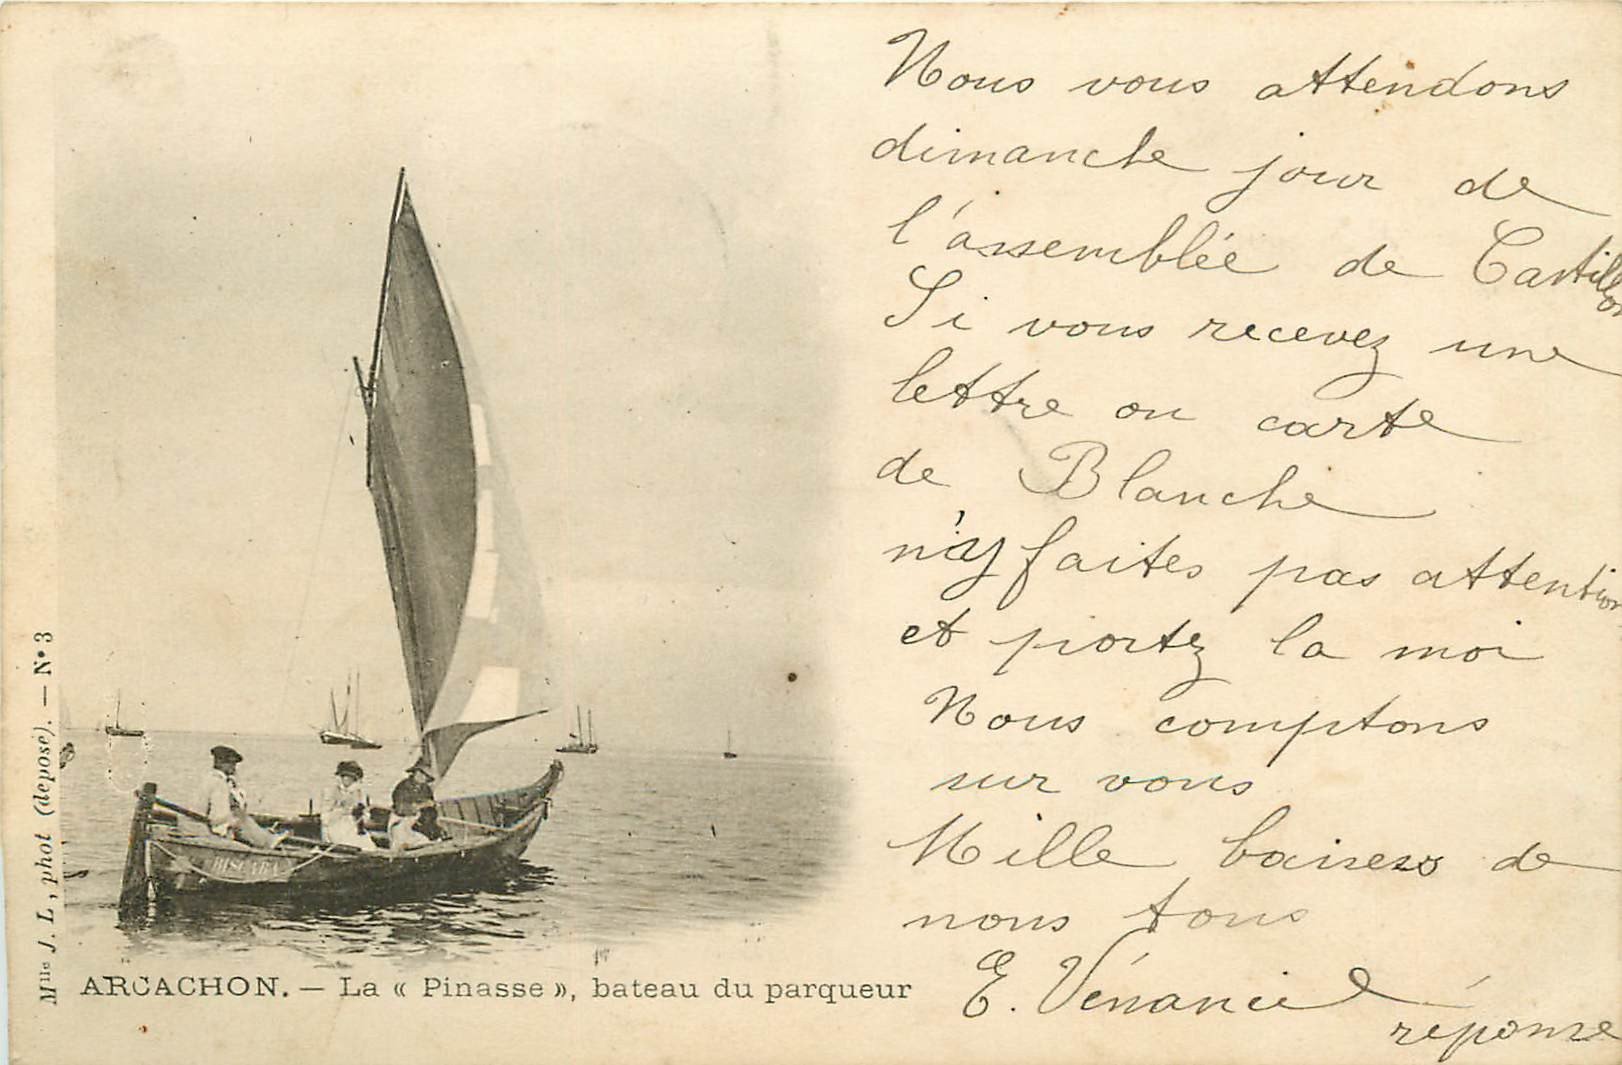 Nous vous attendons
dimanche jour de
l'assemblée de Castillon
Si vous recevez une
lettre ou carte
de Blanche
n'ay faites pas attention
et portez la moi
Nous comptons
sur vous
Mille baisers de
nous tous
E. Vénancie
réponse
ARCACHON. — La « Pinasse », bateau du parqueur
Mlle J. L, phot (déposé). — N° 3